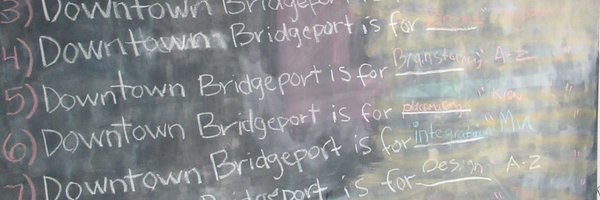 3) Downtown Bridgeport is for
4) Downtown Bridgeport is for Brainstorming" A-Z
5) Downtown Bridgeport is for
6) Downtown Bridgeport is for integration"
7) Downtown Bridgeport is for Design" A-Z
Bridgeport is for